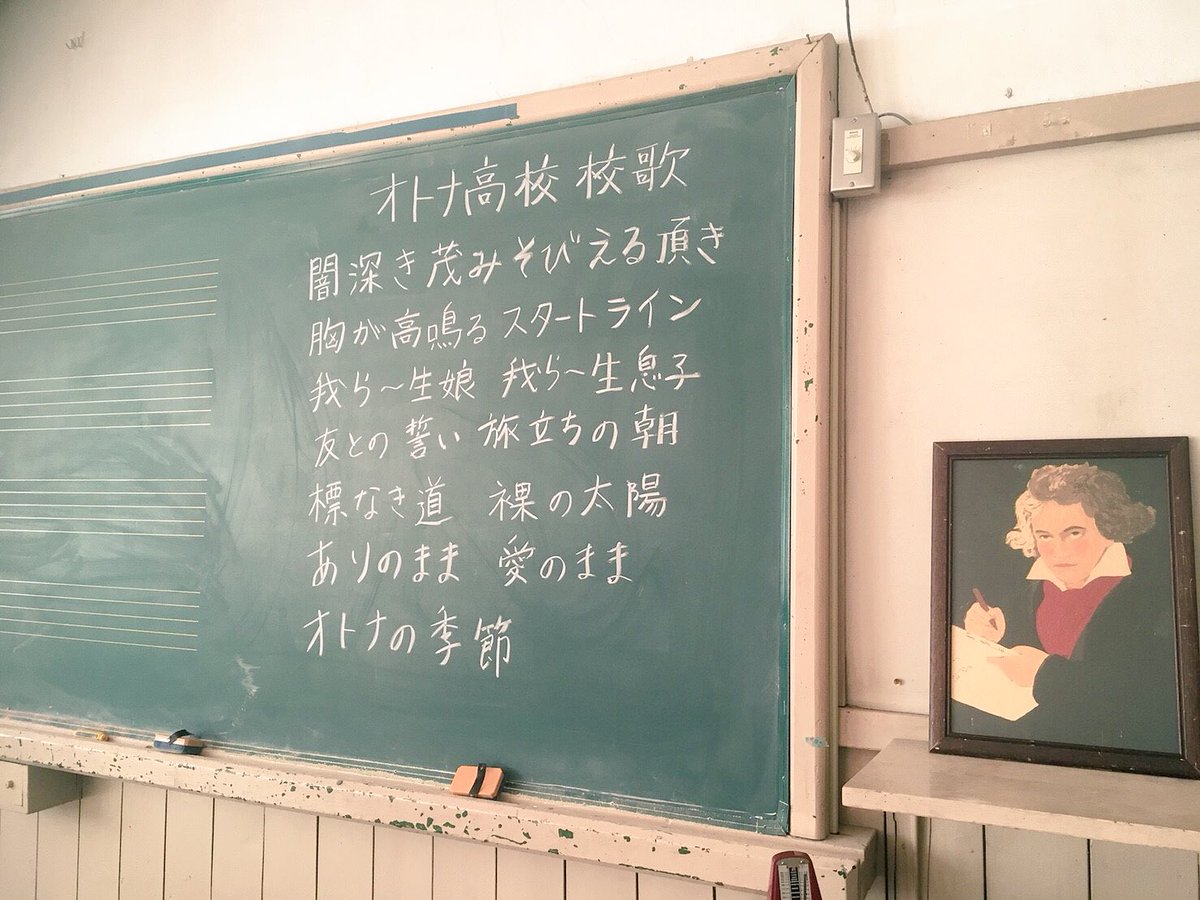 オトナ高校 校歌
闇深き茂みそびえる頂き
胸が高鳴る スタートライン
我ら〜生娘 我ら〜生息子
友との誓い 旅立ちの朝
標なき道 裸の太陽
ありのまま 愛のまま
オトナの季節